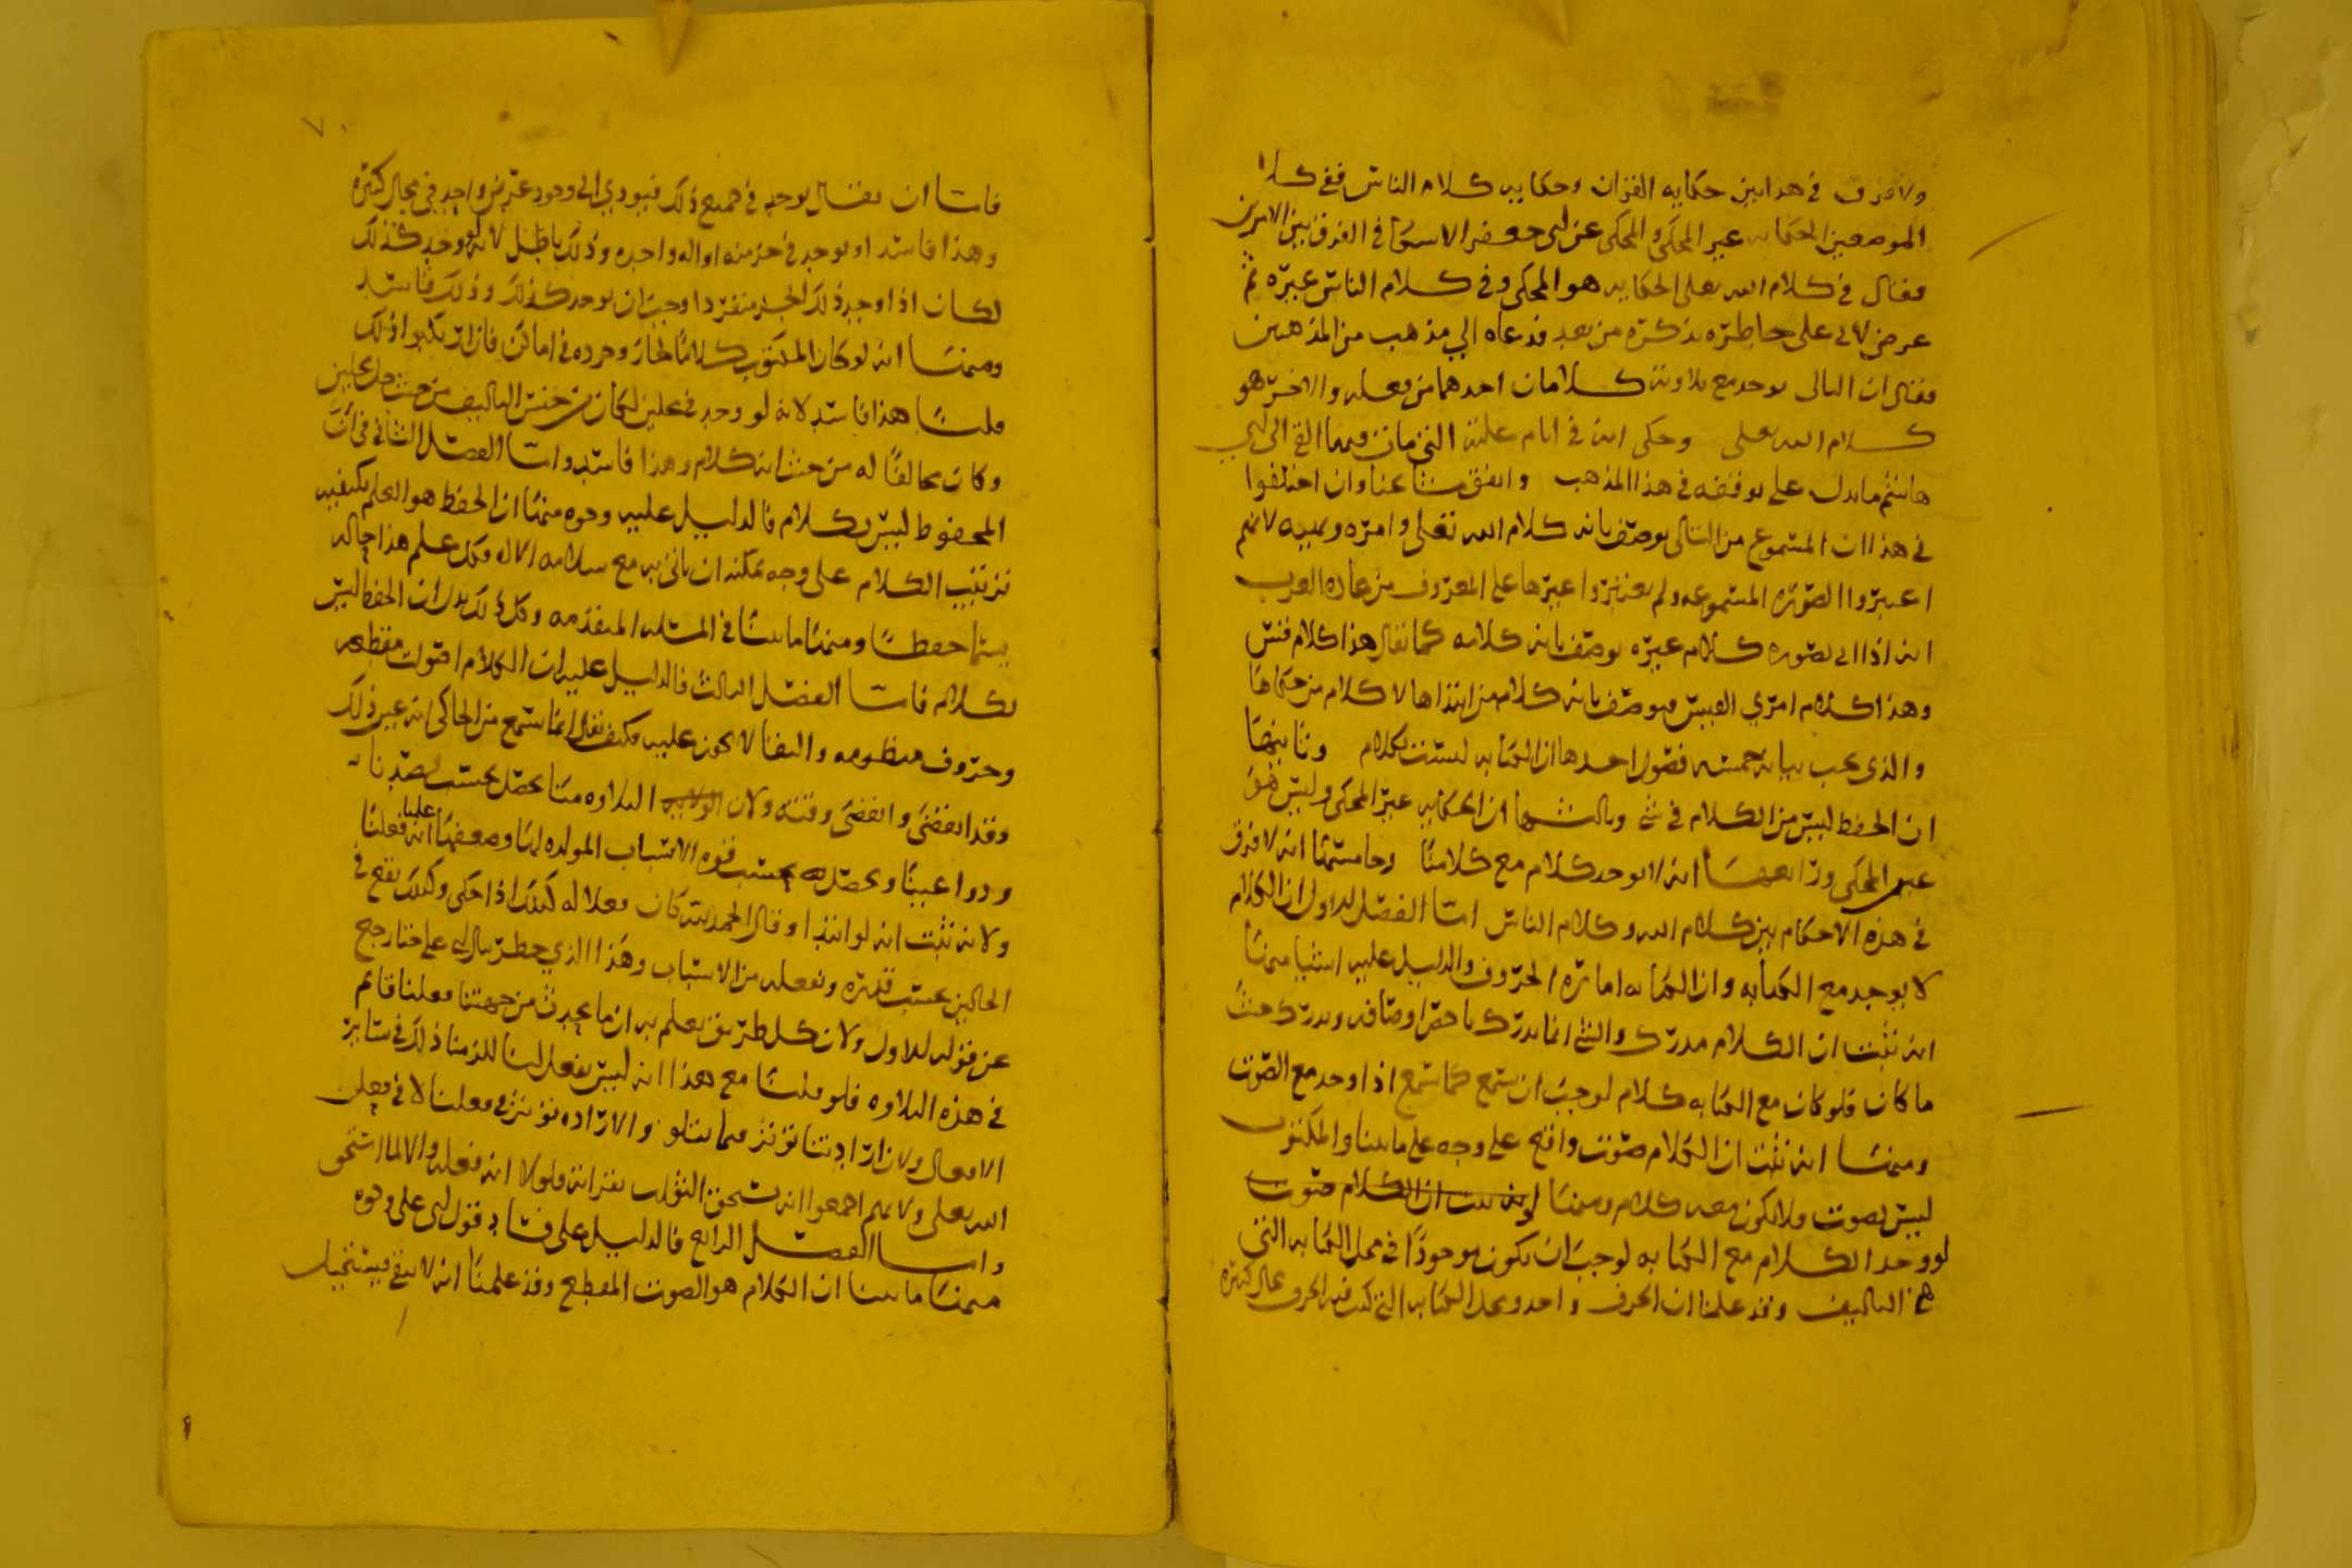 ولا فرق في هذا بين حكايه القران وحكايه كلام الناس ففي كلا
الموضعين الحكايه غير المحكي والمحكي عن ابي جعفر الاسكافي الفرق بين الامرين
فقال في كلام الله تعالى الحكايه هو المحكي وفي كلام الناس غيره ثم
عرض لابي علي خاطره بذكره من بعد فدعاه الي مذهب من المذهبين
فقال ان التالي يوجد مع تلاوته كلامان احدهما من فعله والاخر هو
كلام الله تعلى وحكى انه في ايام علته التي مات فيها القى الى ابي
هاشم ما يدل على توقفه في هذا المذهب واتفق شيخانا وان اختلفوا
في هذا ان المسموع من التالي يوصف بانه كلام الله تعلى وامره ونهيه لانهم
اعتبروا الصوره المسموعه ولم يعتبروا غيرها على المعروف من عاده العرب
انه اذا اتى بصوره كلام غيره يوصف بانه كلامه كما يقال هذا كلام قس
وهذا كلام امري القيس فيوصف بانه كلام من ابتداها لا كلام من حكاها
والذي يجب بيانه خمسه فصول احدها ان الكتابه ليست بكلام وثانيها
ان الحفظ ليس من الكلام في شي وثالثها ان الحكايه غير المحكي وليس هو
عين المحكي ورابعها انه لا يوجد كلام مع كلامنا وخامسها انه لا فرق
في هذه الاحكام بين كلام الله وكلام الناس اما الفصل الاول ان الكلام
لا يوجد مع الكتابه وان الكتابه اماره الحروف والدليل عليه اشيا منها
انه ثبت ان الكلام مدرك والشي انما يدرك باخص اوصافه ويدرك حيث
ما كان فلو كان مع الكتابه كلام لوجب ان يسمع كما يسمع اذا وجد مع الصوت
ومنها انه ثبت ان الكلام صوت واقع على وجه على ما بينا والمكتوب
ليس بصوت فلا يكون معه كلام ومنها انه ثبت ان الكلام صوت
لو وجد الكلام مع الكتابه لوجب ان يكون موجودا في محل الكتابه التي
هي التاليف وقد علمنا ان الحرف واحد ومحل الكتابه التي كتب فيه الحرف محال كثيره
٧٠
فاما ان يقال يوجد في جميع ذلك فيودي الى وجود عرض واحد في محال كثيره
وهذا فاسد او يوجد في جز منه اوله واحده وذلك باطل لانه لو وجد كذلك
لكان اذا وجد ذلك الجز منفردا وجب ان يوجد كذلك وذلك فاسد
ومنها انه لو كان المكتوب كلاما لجاز وجوده في اماكن فان ارتكبوا ذلك
قلنا هذا فاسد لانه لو وجد في محلين لكان من جنس التاليف من حيث حل محلين
وكان مخالفا له من حيث انه كلام وهذا فاسد واما الفصل الثاني في ان
المحفوظ ليس بكلام فالدليل عليه وجوه منها ان الحفظ هو العلم بكيفيه
ترتيب الكلام على وجه يمكنه ان ياتي به مع سلامه الاله وكل علم هذا حاله
يسما حفظا ومنها ما بينا في المسله المتقدمه وكل ذلك يدل ان الحفظ ليس
بكلام فاما الفصل الثالث فالدليل عليه ان الكلام اصوات مقطعه
وحروف منظومه والبقا لا يجوز عليه فكيف يقال انما يسمع من الحاكي انه غير ذلك
وقد انقضى وانقضى وقته ولان التلاوه منا تحصل بحسب قصدنا
ودواعينا وتحصل بحسب قوه الاسباب المولده لها وضعفها علمنا انه فعلنا
ولانه ثبت انه لو ابتدا وقال الحمد لله كان فعلا له كذلك اذا حكى وكذلك يقع في
الحالين بحسب قدره ونفعله من الاسباب وهذا الذي خطر ببال ابي علي حتى رجع
عن قوله الاول ولان كل طريق يعلم به ان ما يحدث من جهتنا فعلنا قايم
في هذه التلاوه فلو قلنا مع هذا انه ليس بفعل لنا للزمنا ذلك في ساير
الافعال ولان ارادتنا توثر فيما يتلو والاراده توثر في فعلنا لا في فعل
الله تعلى ولانهم اجمعوا انه يستحق الثواب بقراته فلولا انه فعله والا لما استحق
واما الفصل الرابع فالدليل على فساد قول ابي علي وجوه
منها ما بينا ان الكلام هو الصوت المقطع وقد علمنا انه لا يبقى فيستحيل